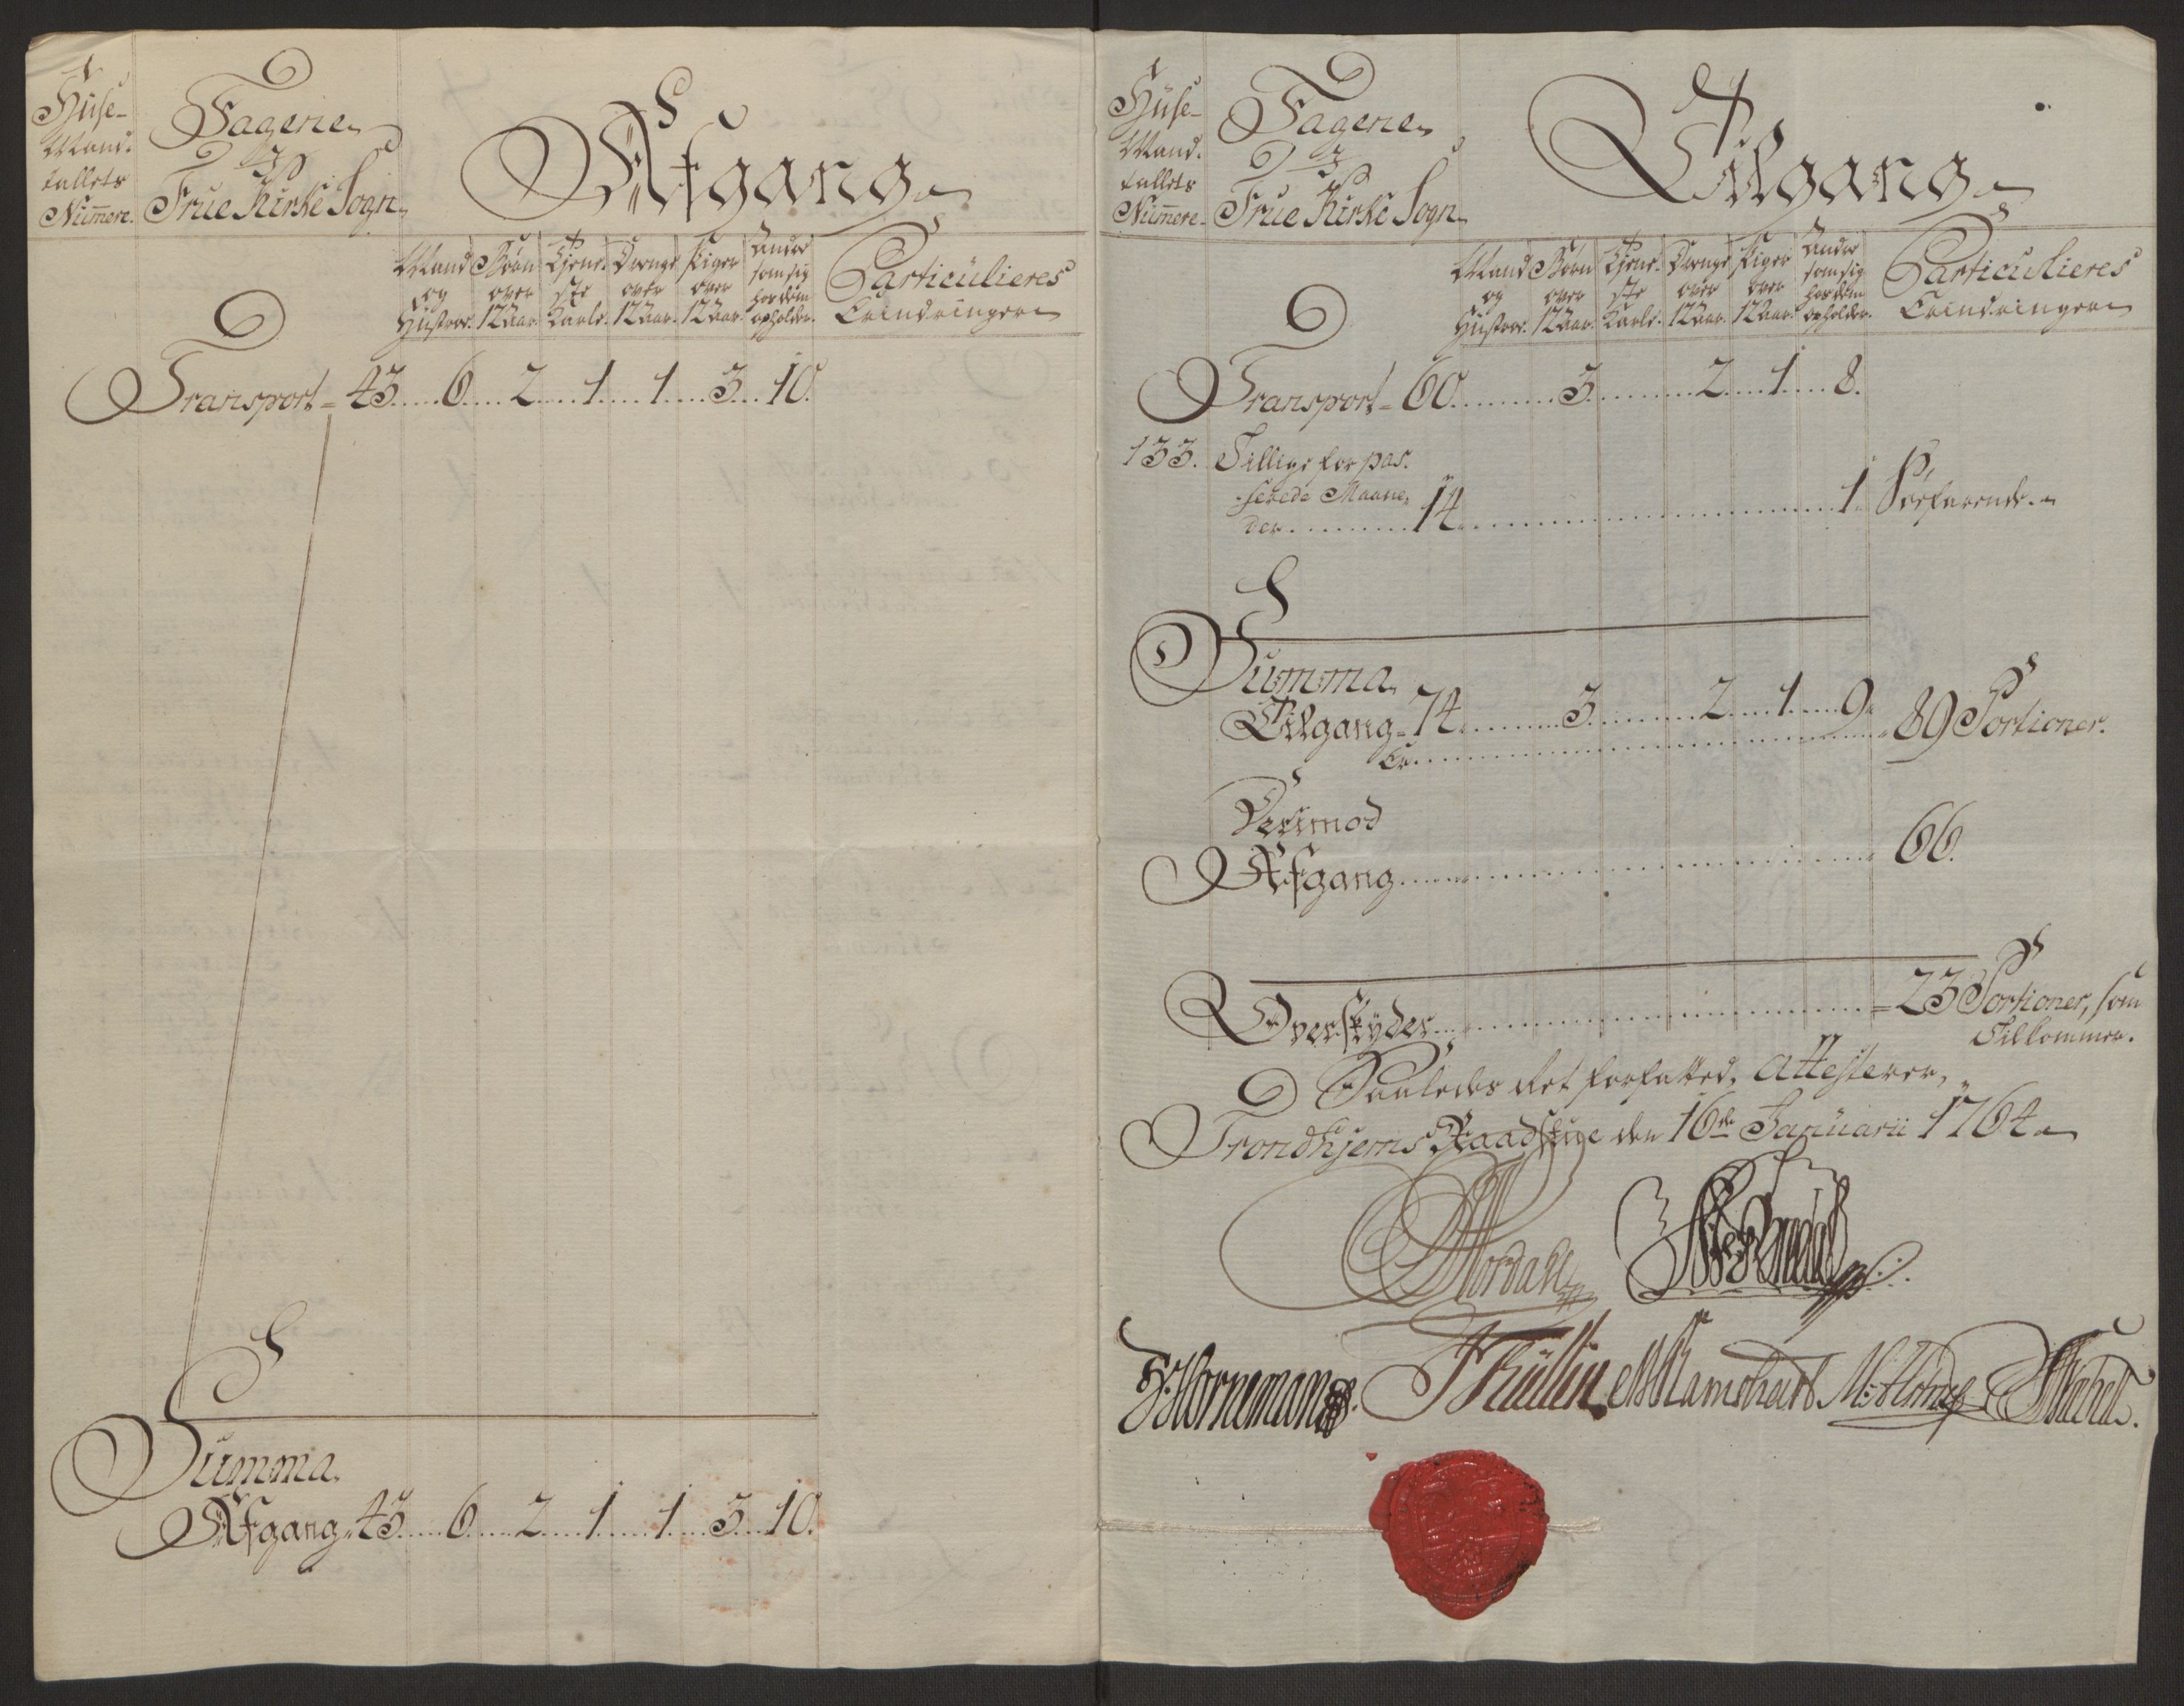 Huse-
Mand-
tallets
Numere.
Fagerie
Frue Kirke Sogn
Afgang
Mand og Hustroe.
Børn over 12 aar.
Tjene-ste Karle.
Drenge over 12 aar.
Piger over 12 aar.
Andre som sig hos dem opholder.
Particulieres Erindringer
Transport = 43 6 2 1 1 3 10.
Summa
Afgang 43 6 2 1 1 3 10.
Huse-
Mand-
tallets
Numere.
Fagerie
Frue Kirke Sogn
Tilgang
Mand og Hustroe.
Børn over 12 aar.
Tjene-ste Karle.
Drenge over 12 aar.
Piger over 12 aar.
Andre som sig hos dem opholder.
Particulieres Erindringer
Transport = 60 3 2 1 8.
133. Tillige for pas-
serede Maane-
der 14 1 Søefarende.
Summa
Tilgang = 74 3 2 1 9.
Er 89 Portioner.
Derimod
Afgang 66.
Overskyder = 23 Portioner, som
Tilkommer.
Saaledes rett forfatted, Attesterer,
Trondhjems Raadstue den 16de Januarii 1764
Nordahl
Hornemann
Thulin